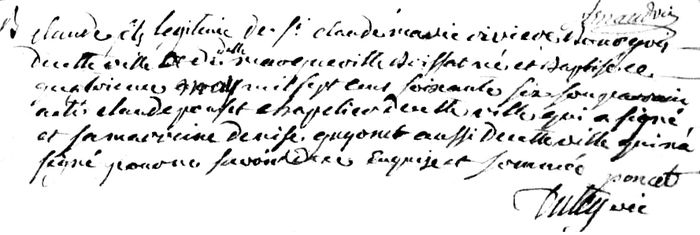 claude fils légitime de Sr claude marie riviere Bourgeois
de cette ville et de delle marguerite Boissat né et Baptisé ce
quatrieme mil sept cens soixante six son parrain
a été claude poncet chapelier de cette ville qui a signé
et sa marraine denise guyonet aussi de cette ville qui na
signé pour ne savoir de ce Enquise et sommée poncet
vic